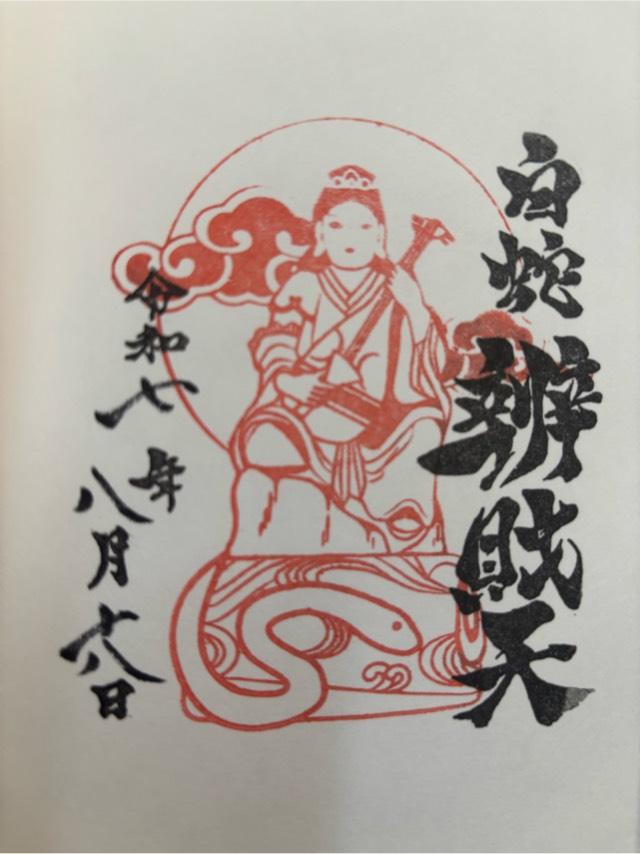 白蛇辨財天
令和七年八月十八日